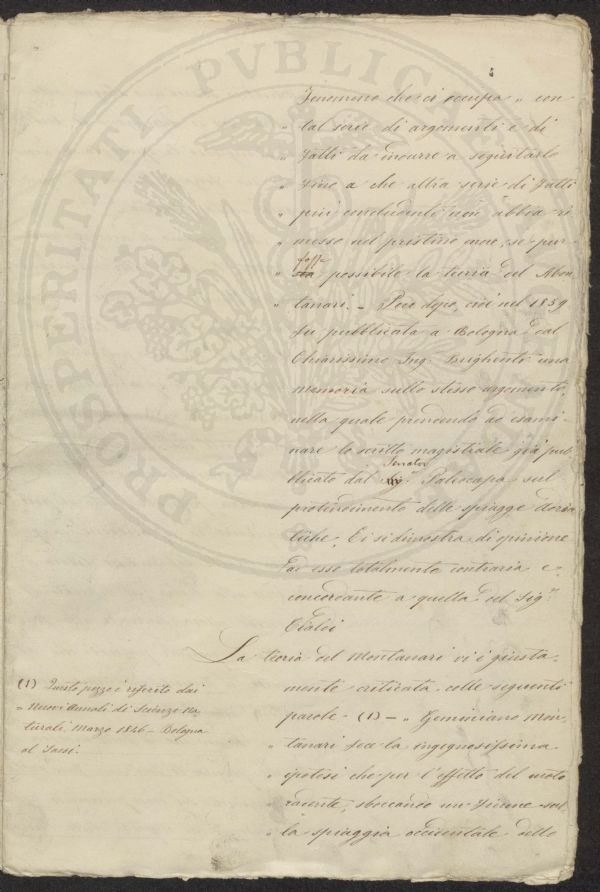 PROSPERITATI PVBLICAE
Fenomeno che ci occupa „ con
„ tal serie di argomenti e di
„ fatti da indurre a seguitarlo
„ fino a che altra serie di fatti
„ più concludenti non abbia ri
„ messo nel pristino onore, se pur
fosse
„ possibile la teoria del Mon
„ tanari. – Poco dopo, cioè nel 1859
fu pubblicata a Bologna dal
Chiarissimo Ing. Brighenti una
memoria sullo stesso argomento,
nella quale prendendo ad esami
nare lo scritto magistrale già pub
Senator
blicato dal Paleocapa sul
protendimento delle spiagge Adria
tiche, Ei si dimostra di opinione
da esso totalmente contraria e
concordante a quella del Sig.r
Cialdi
La teoria del Montanari vi è giusta
mente criticata colle seguenti
parole (1) – „ Geminiano Mon
„ tanari fece la ingegnosissima
„ ipotesi che per l'effetto del moto
„ radente, sboccando un fiume sul
„ la spiaggia occidentale dello
(1) Questo pezzo è riferito dai
„ Nuovi Annali di Scienze Na
turali, Marzo 1846 – Bologna
al Sassi.